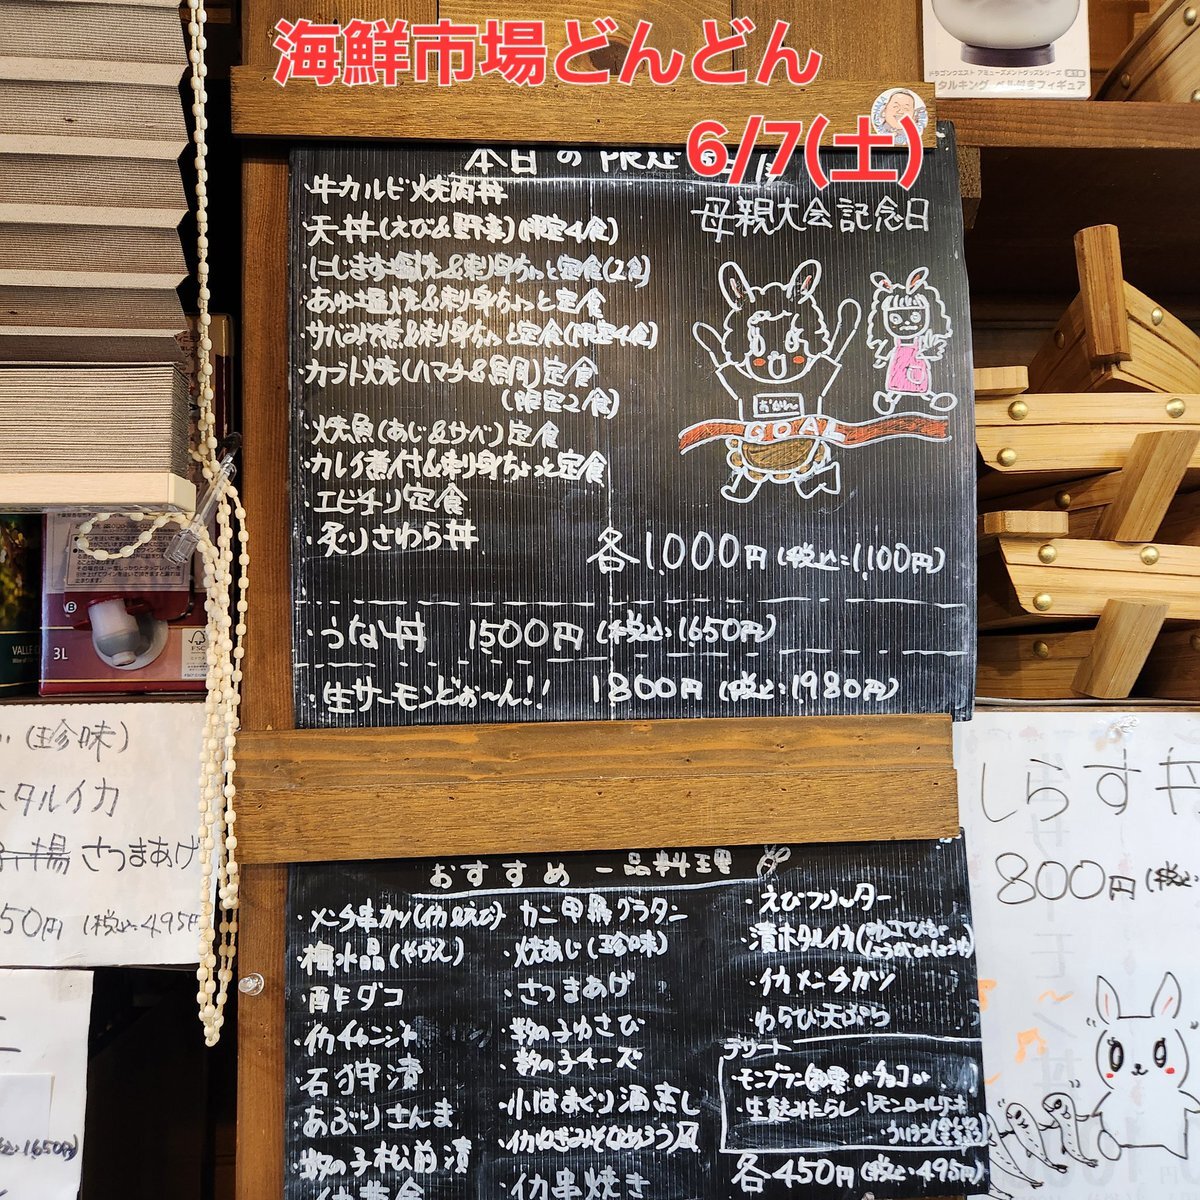 海鮮市場どんどん
6/7(土)
ドラゴンクエスト アミューズメントグッズシリーズ
タルキング ベル付きフィギュア
本日の
母親大会記念日
・牛カルビ焼肉丼
・天丼(えび&野菜)(限定4食)
・にじます塩焼&刺身ちょっと定食(2食)
・あゆ塩焼&刺身ちょっと定食
・サバみそ煮&刺身ちょっと定食(限定4食)
・カブト焼(ハマチ&鯛)定食
(限定2食)
・焼魚(あじ&サバ)定食
・カレイ煮付&刺身ちょっと定食
・エビチリ定食
・炙りさわら丼
おかん
GOAL
各1,000円(税込:1,100円)
・うな丼 1500円(税込:1,650円)
・生サーモンどぉ〜ん!! 1800円(税込:1980円)
VALLE
3L
FSC
(珍味)
ホタルイカ
揚 さつまあげ
50円(税込:495円
1,650円)
しらす丼
800円(税込
おすすめ 一品料理
・メンチ串カツ(イカ&えび)
・梅水晶(やげん)
・酢ダコ
・イカチャンジャ
・石狩漬
・あぶりさんま
・数の子松前漬
・カニ甲羅グラタン
・焼あじ(珍味)
・さつまあげ
・数の子わさび
・数の子チーズ
・小はまぐり酒蒸し
・イカ串焼き
・えびフリッター
・漬ホタルイカ
・イカメンチカツ
・わらび天ぷら
デザート
・生麩みたらし
各450円(税込:495円)